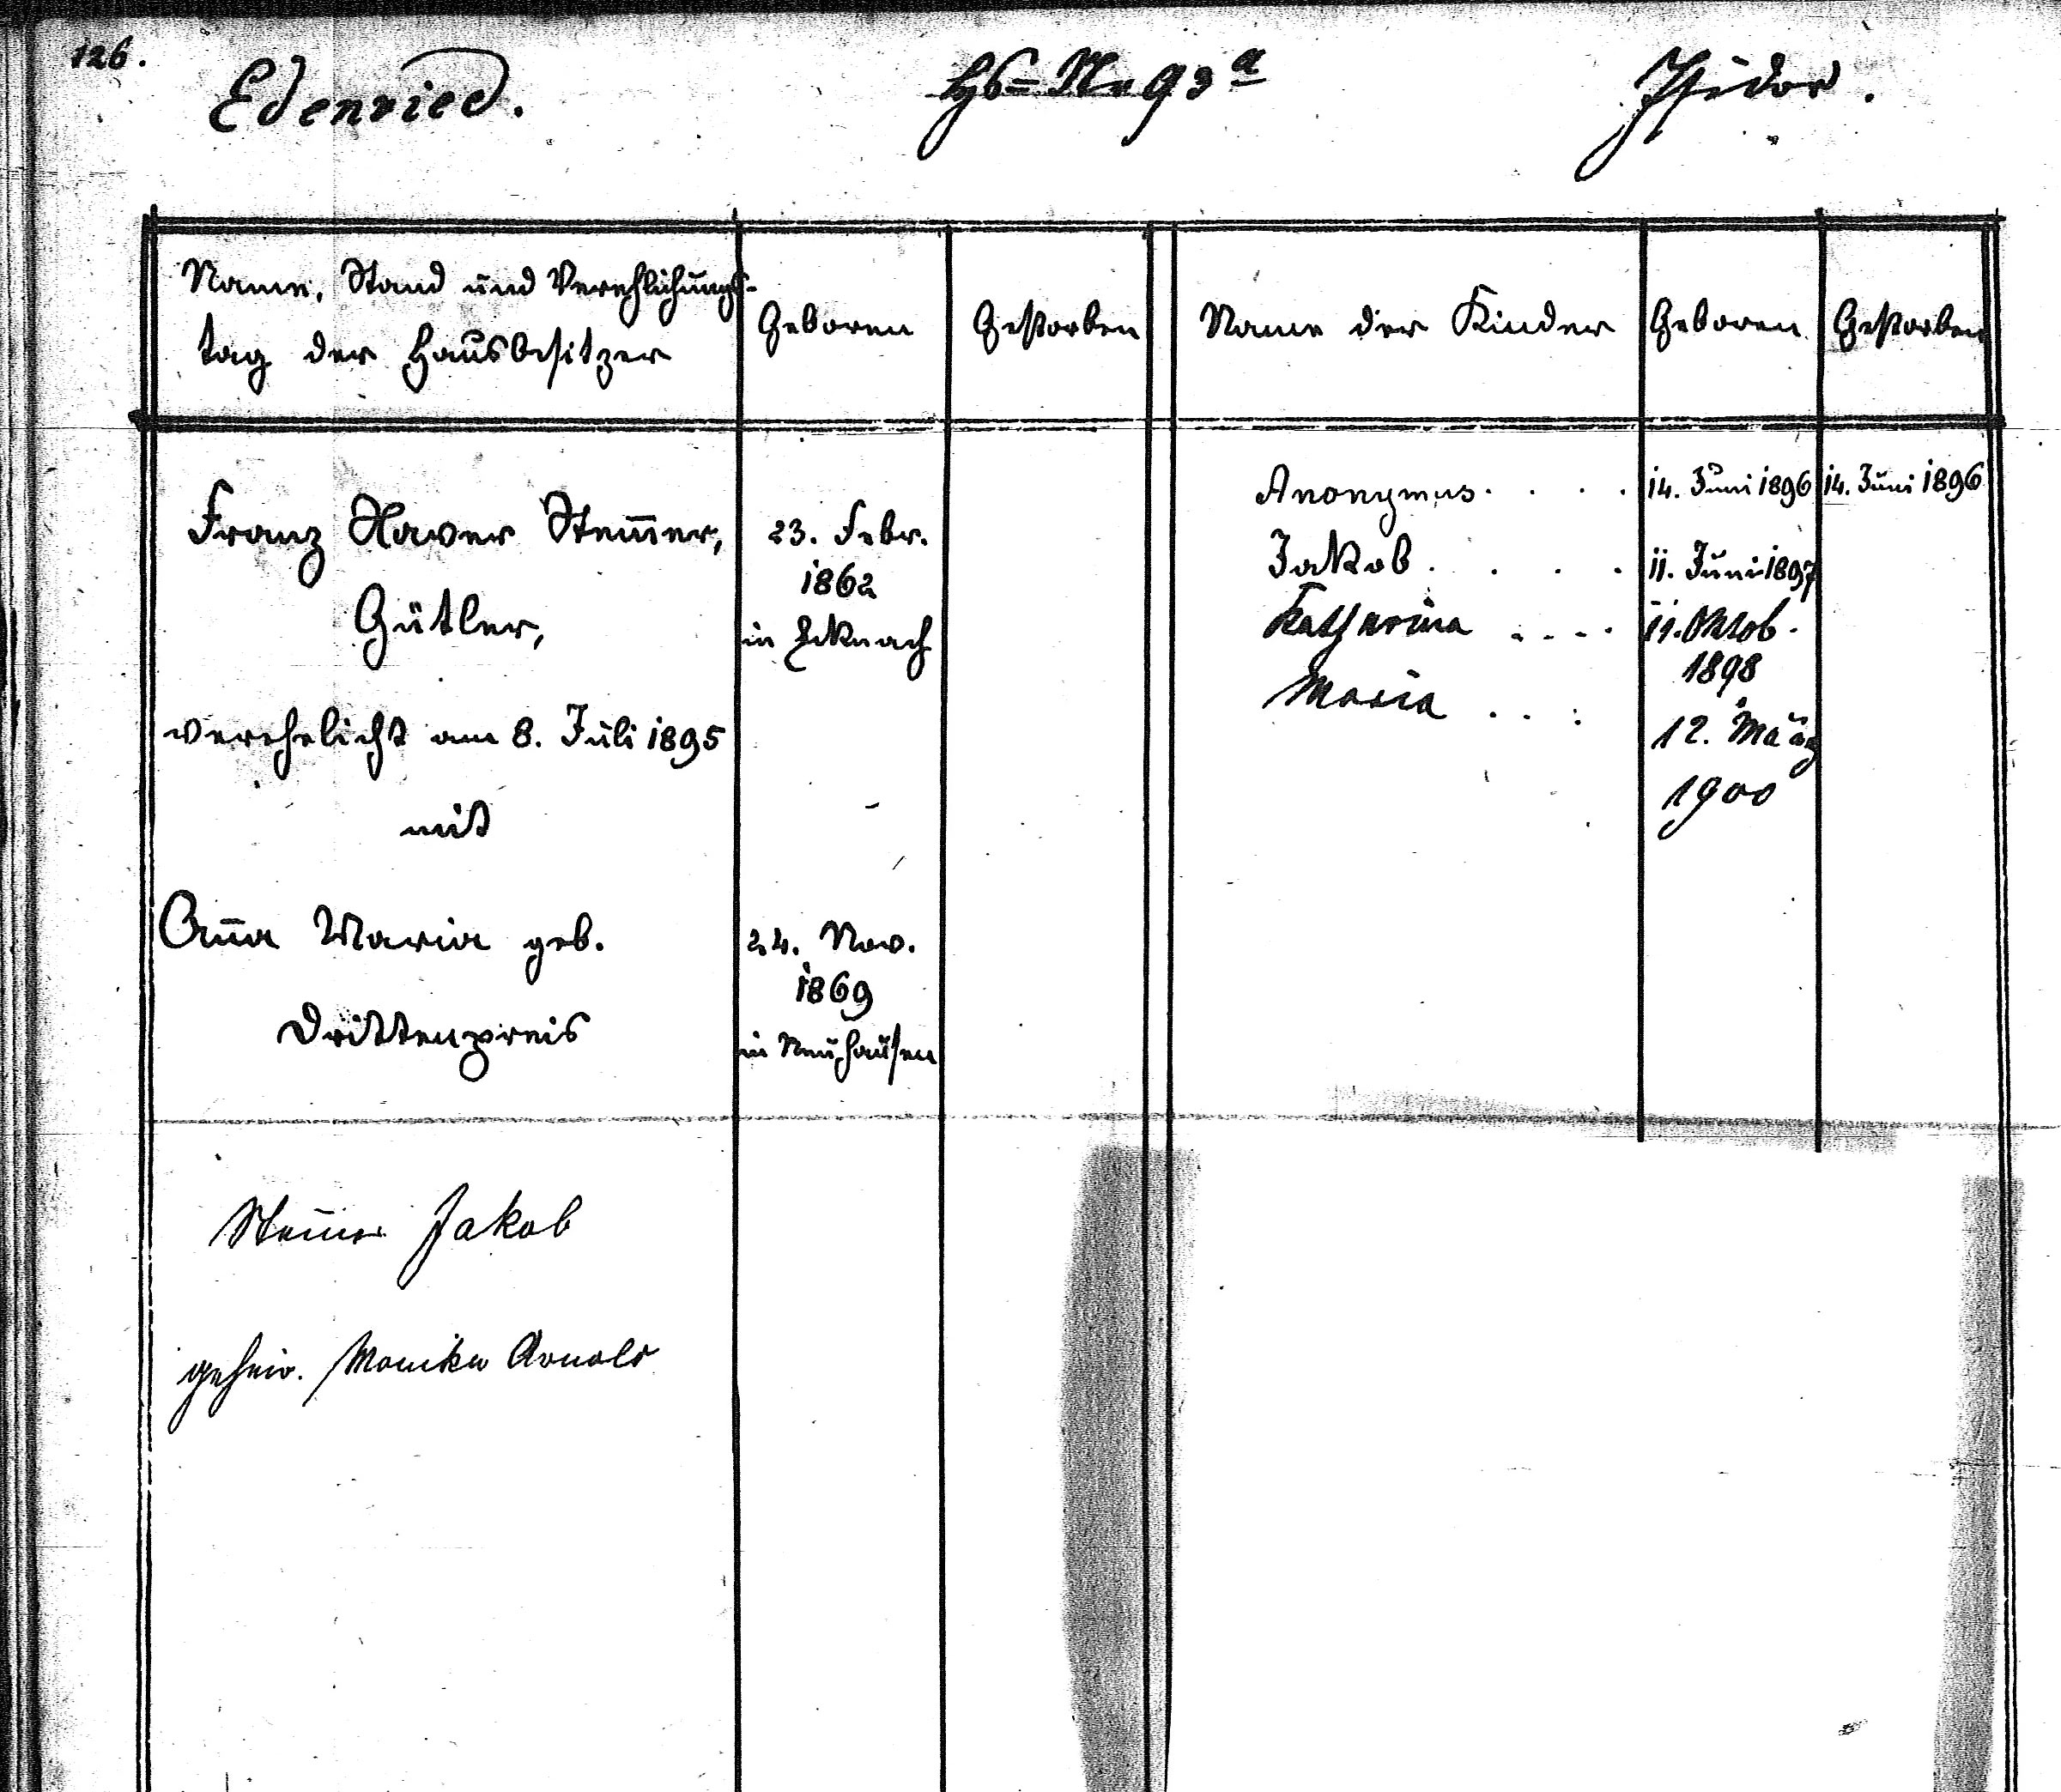 126.
Edenried.
Hs=Nr 93a
Isidor.
Name, Stand und Verehlichungs-
tag der Hausbesitzer
Geboren
Gestorben
Name der Kinder
Geboren
Gestorben
Franz Xaver Stem̄er,
Gütler,
verehelicht am 8. Juli 1895
mit
An̄a Maria geb.
Drittenpreis
23. Febr.
1862
in Ecknach
24. Nov.
1869
in Neuhausen
Anonymus . . . . 14. Juni 1896 14. Juni 1896
Jakob . . . . 11. Juni 1897
Katharina . . . . 11. Oktob.
1898
Maria . . . 12. März
1900
Stem̄er Jakob
geheir. Monika Arnold